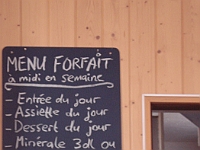 MENU FORFAIT
à midi en semaine
- Entrée du jour
- Assiette du jour
- Dessert du jour
- Minérale 3dl ou